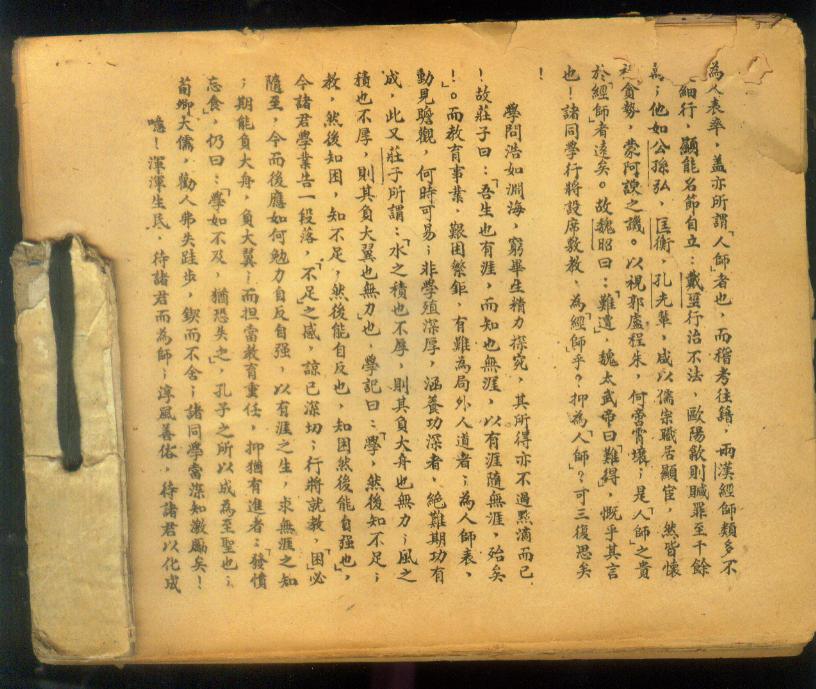 為人表率，蓋亦所謂「人師」者也，而稽考往籍，兩漢經師類多不
細行，顯能名節自立：戴聖行治不法，歐陽歙則贓罪至千餘
萬；他如公孫弘，匡衡，孔光輩，咸以儒宗職居顯宦，然皆懷
貪勢，蒙阿諛之譏。以視郭盧程朱，何啻霄壤；是「人師」之貴
於「經師」者遠矣。故魏昭曰：「難遭」，魏太武帝曰「難得」，慨乎其言
也！諸同學行將設席敷教，為「經師」乎？抑為「人師」？可三復思矣
！
學問浩如淵海，窮畢生精力探究，其所得亦不過點滴而已
！故莊子曰：「吾生也有涯，而知也無涯，以有涯隨無涯，殆矣
！」。而教育事業，艱困繁鉅，有難為局外人道者；為人師表，
動見瞻觀，何時可易；非學殖深厚，涵養功深者，絕難期功有
成，此又莊子所謂：「水之積也不厚，則其負大舟也無力；風之
積也不厚，則其負大翼也無力」也，學記曰：「學，然後知不足；
教，然後知困，知不足，然後能自反也，知困然後能自强也」，
今諸君學業告一段落，「不足」之感，諒已深切；行將就教，「困」必
隨至，今而後應如何勉力自反自强，以有涯之生，求無涯之知
；期能負大舟，負大翼；而担當教育重任，抑猶有進者：「發憤
忘食」，仍曰：「學如不及，猶恐失之」，孔子之所以成為至聖也；
荀卿大儒，勸人弗失跬步，鍥而不舍；諸同學當深知激勵矣！
噫！渾渾生民，待諸君而為師；淳風善俗，待諸君以化成